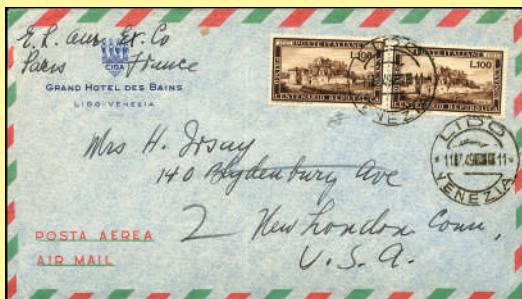 E. R. am. Ex. Co
Paris France
CIGA
GRAND HOTEL DES BAINS
LIDO-VENEZIA
POSTE ITALIANE
L.100
CENTENARIO REPUBBLICA ROMANA
POSTE ITALIANE
L.100
CENTENARIO REPUBBLICA ROMANA
LIDO
VENEZIA
LIDO
VENEZIA
Mrs H.
140 Ave
2 New London Conn,
U. S. A.
POSTA AEREA
AIR MAIL